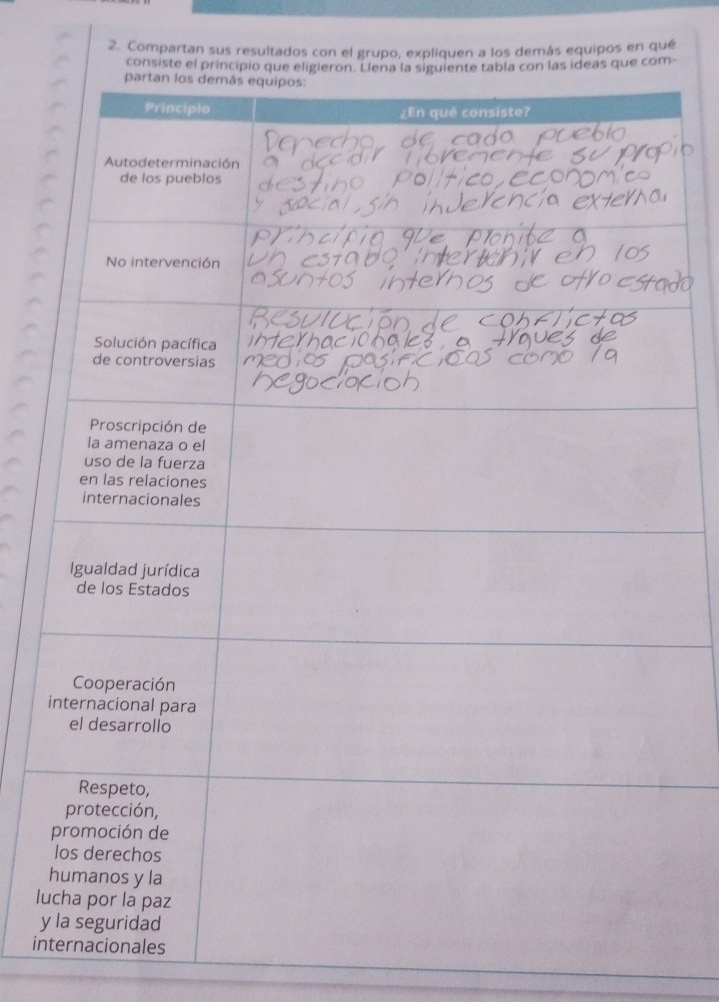 2. Compartan sus resultados con el grupo, expliquen a los demás equipos en qué
consiste el principio que eligieron. Llena la siguiente tabla con las ideas que com-
partan los demás equipos:
Principio
¿En qué consiste?
Autodeterminación
de los pueblos
Derecho de cada pueblo
a decidir libremente su propio
destino político, economico
y social, sin inJerencia externa.
No intervención
principio que prohibe a
un estado intertenir en los
asuntos internos de otro estado
Solución pacífica
de controversias
Resulución de conflictos
internacionales, a traques de
medios pasificicos como la
negociacion
Proscripción de
la amenaza o el
uso de la fuerza
en las relaciones
internacionales
Igualdad jurídica
de los Estados
Cooperación
internacional para
el desarrollo
Respeto,
protección,
promoción de
los derechos
humanos y la
lucha por la paz
y la seguridad
internacionales